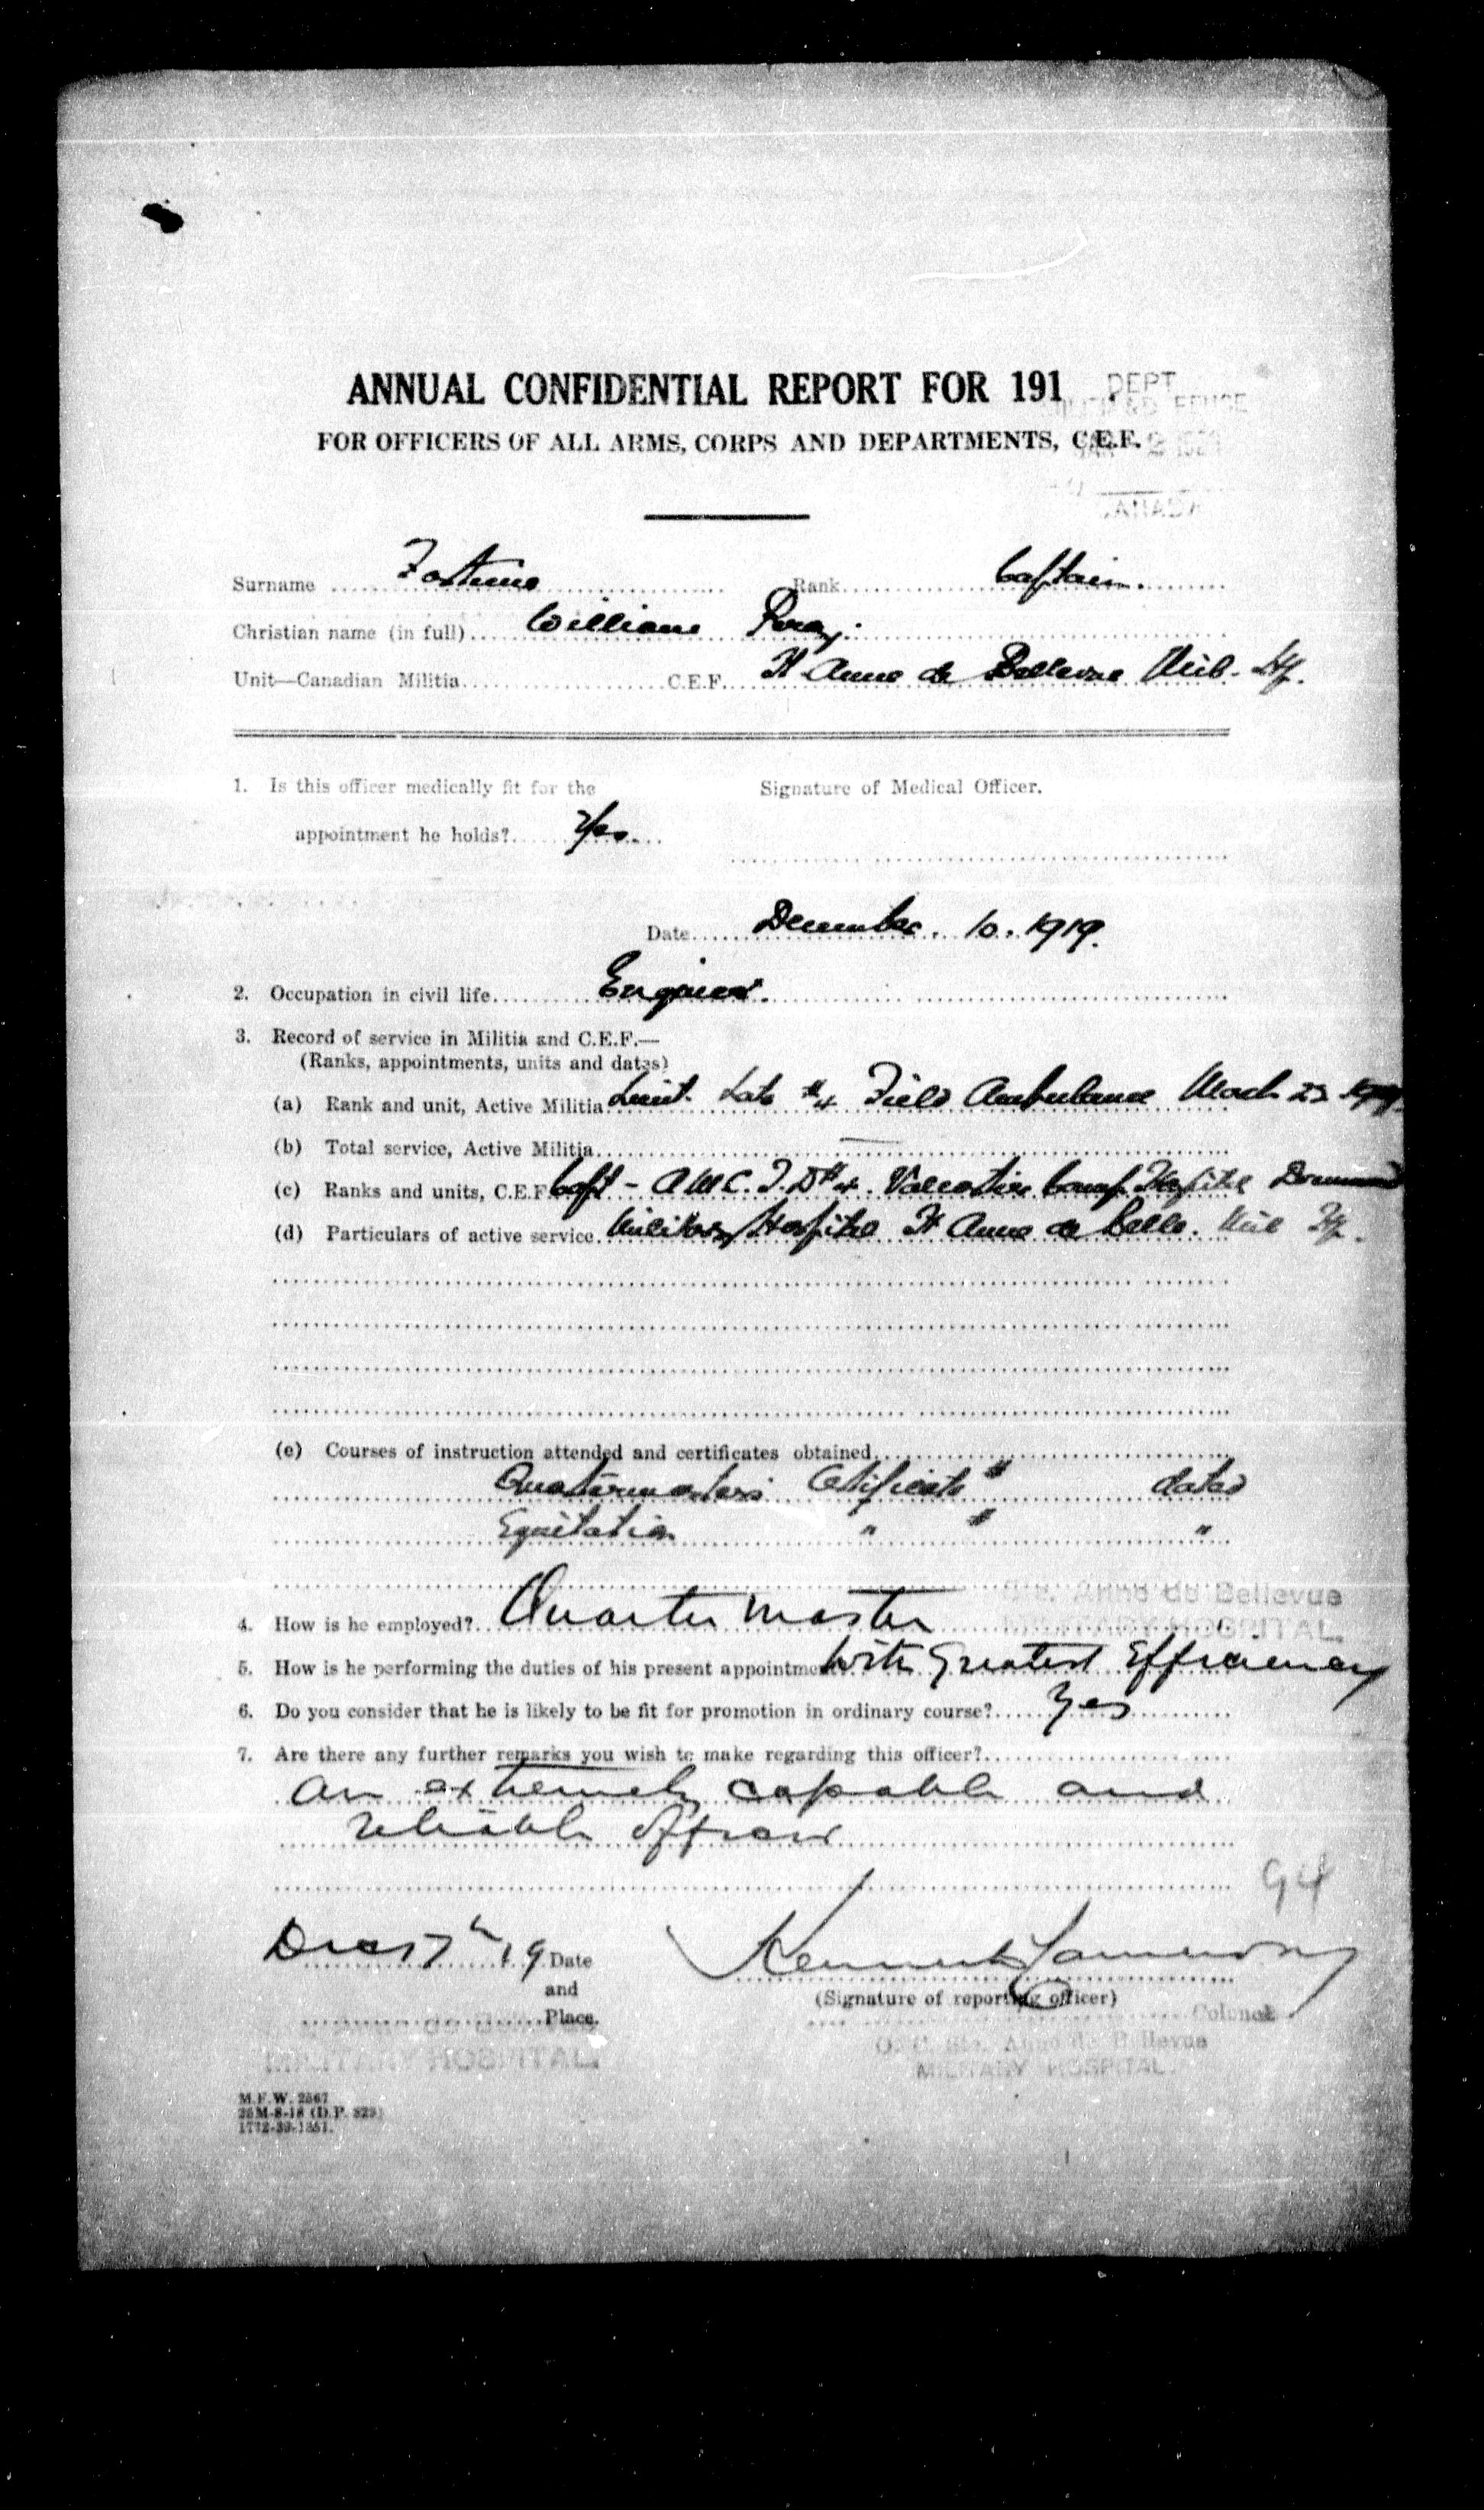 ANNUAL CONFIDENTIAL REPORT FOR 191
DEPT
FOR OFFICERS OF ALL ARMS, CORPS AND DEPARTMENTS, C.E.F.
CANADA
Surname Fortune Rank Captain.
Christian name (in full) William
Unit—Canadian Militia C.E.F. St Anne de Bellevue Mil.
1. Is this officer medically fit for the
Signature of Medical Officer.
appointment he holds? Yes.
Date December. 10. 1919.
2. Occupation in civil life Engineer.
3. Record of service in Militia and C.E.F.—
(Ranks, appointments, units and dates)
(a) Rank and unit, Active Militia Lieut. #4 Field Ambulance March 23
(b) Total service, Active Militia —
(c) Ranks and units, C.E.F. Capt - A.M.C. T.D #4. Valcartier Camp Hospital Drummond
(d) Particulars of active service Military Hospital St Anne de Belle. Mil
(e) Courses of instruction attended and certificates obtained
Quartermasters Certificate # dated
Equitation " # "
Ste. Anne de Bellevue
MILITARY HOSPITAL.
4. How is he employed? Quarter master
5. How is he performing the duties of his present appointment with greatest Efficiency
6. Do you consider that he is likely to be fit for promotion in ordinary course? Yes
7. Are there any further remarks you wish to make regarding this officer?
an extremely capable and
reliable officer
94
Dec 17th 19 Date
and
Place.
(Signature of reporting officer)
Colonel
O. C. Ste. Anne de Bellevue
MILITARY HOSPITAL.
MILITARY HOSPITAL.
M.F.W. 2567
25M-8-18 (D.P. 823)
1772-39-1351.